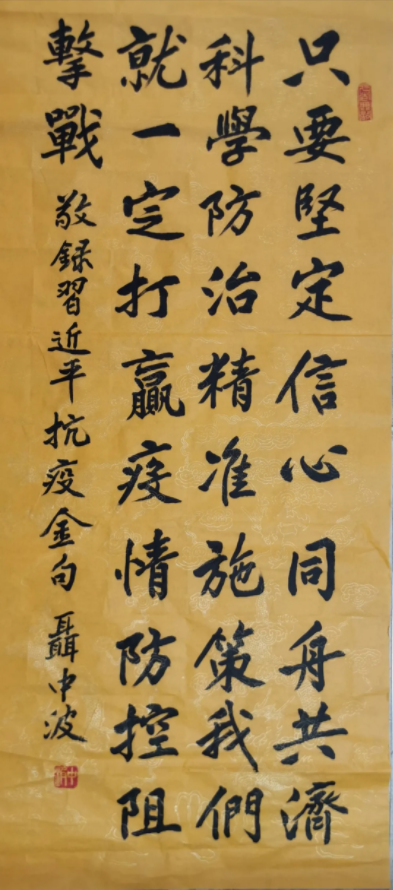 只要堅定信心同舟共濟
科學防治精准施策我們
就一定打贏疫情防控阻
擊戰
敬録習近平抗疫金句 聶中波